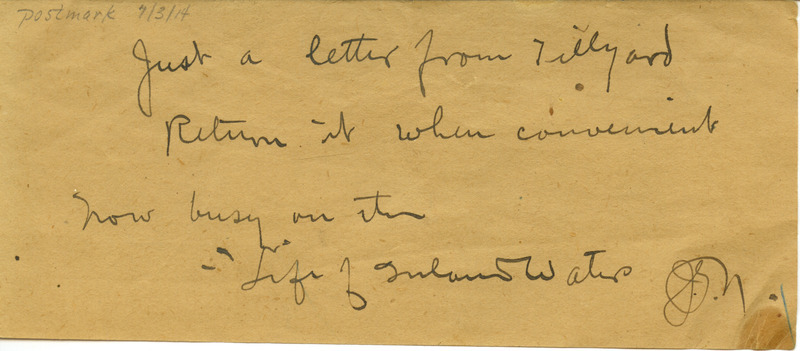 postmark 9/3/14
Just a letter from Tillyard
Return it when convenient
Now busy on the
"Life of Inland Waters
J.G.N.